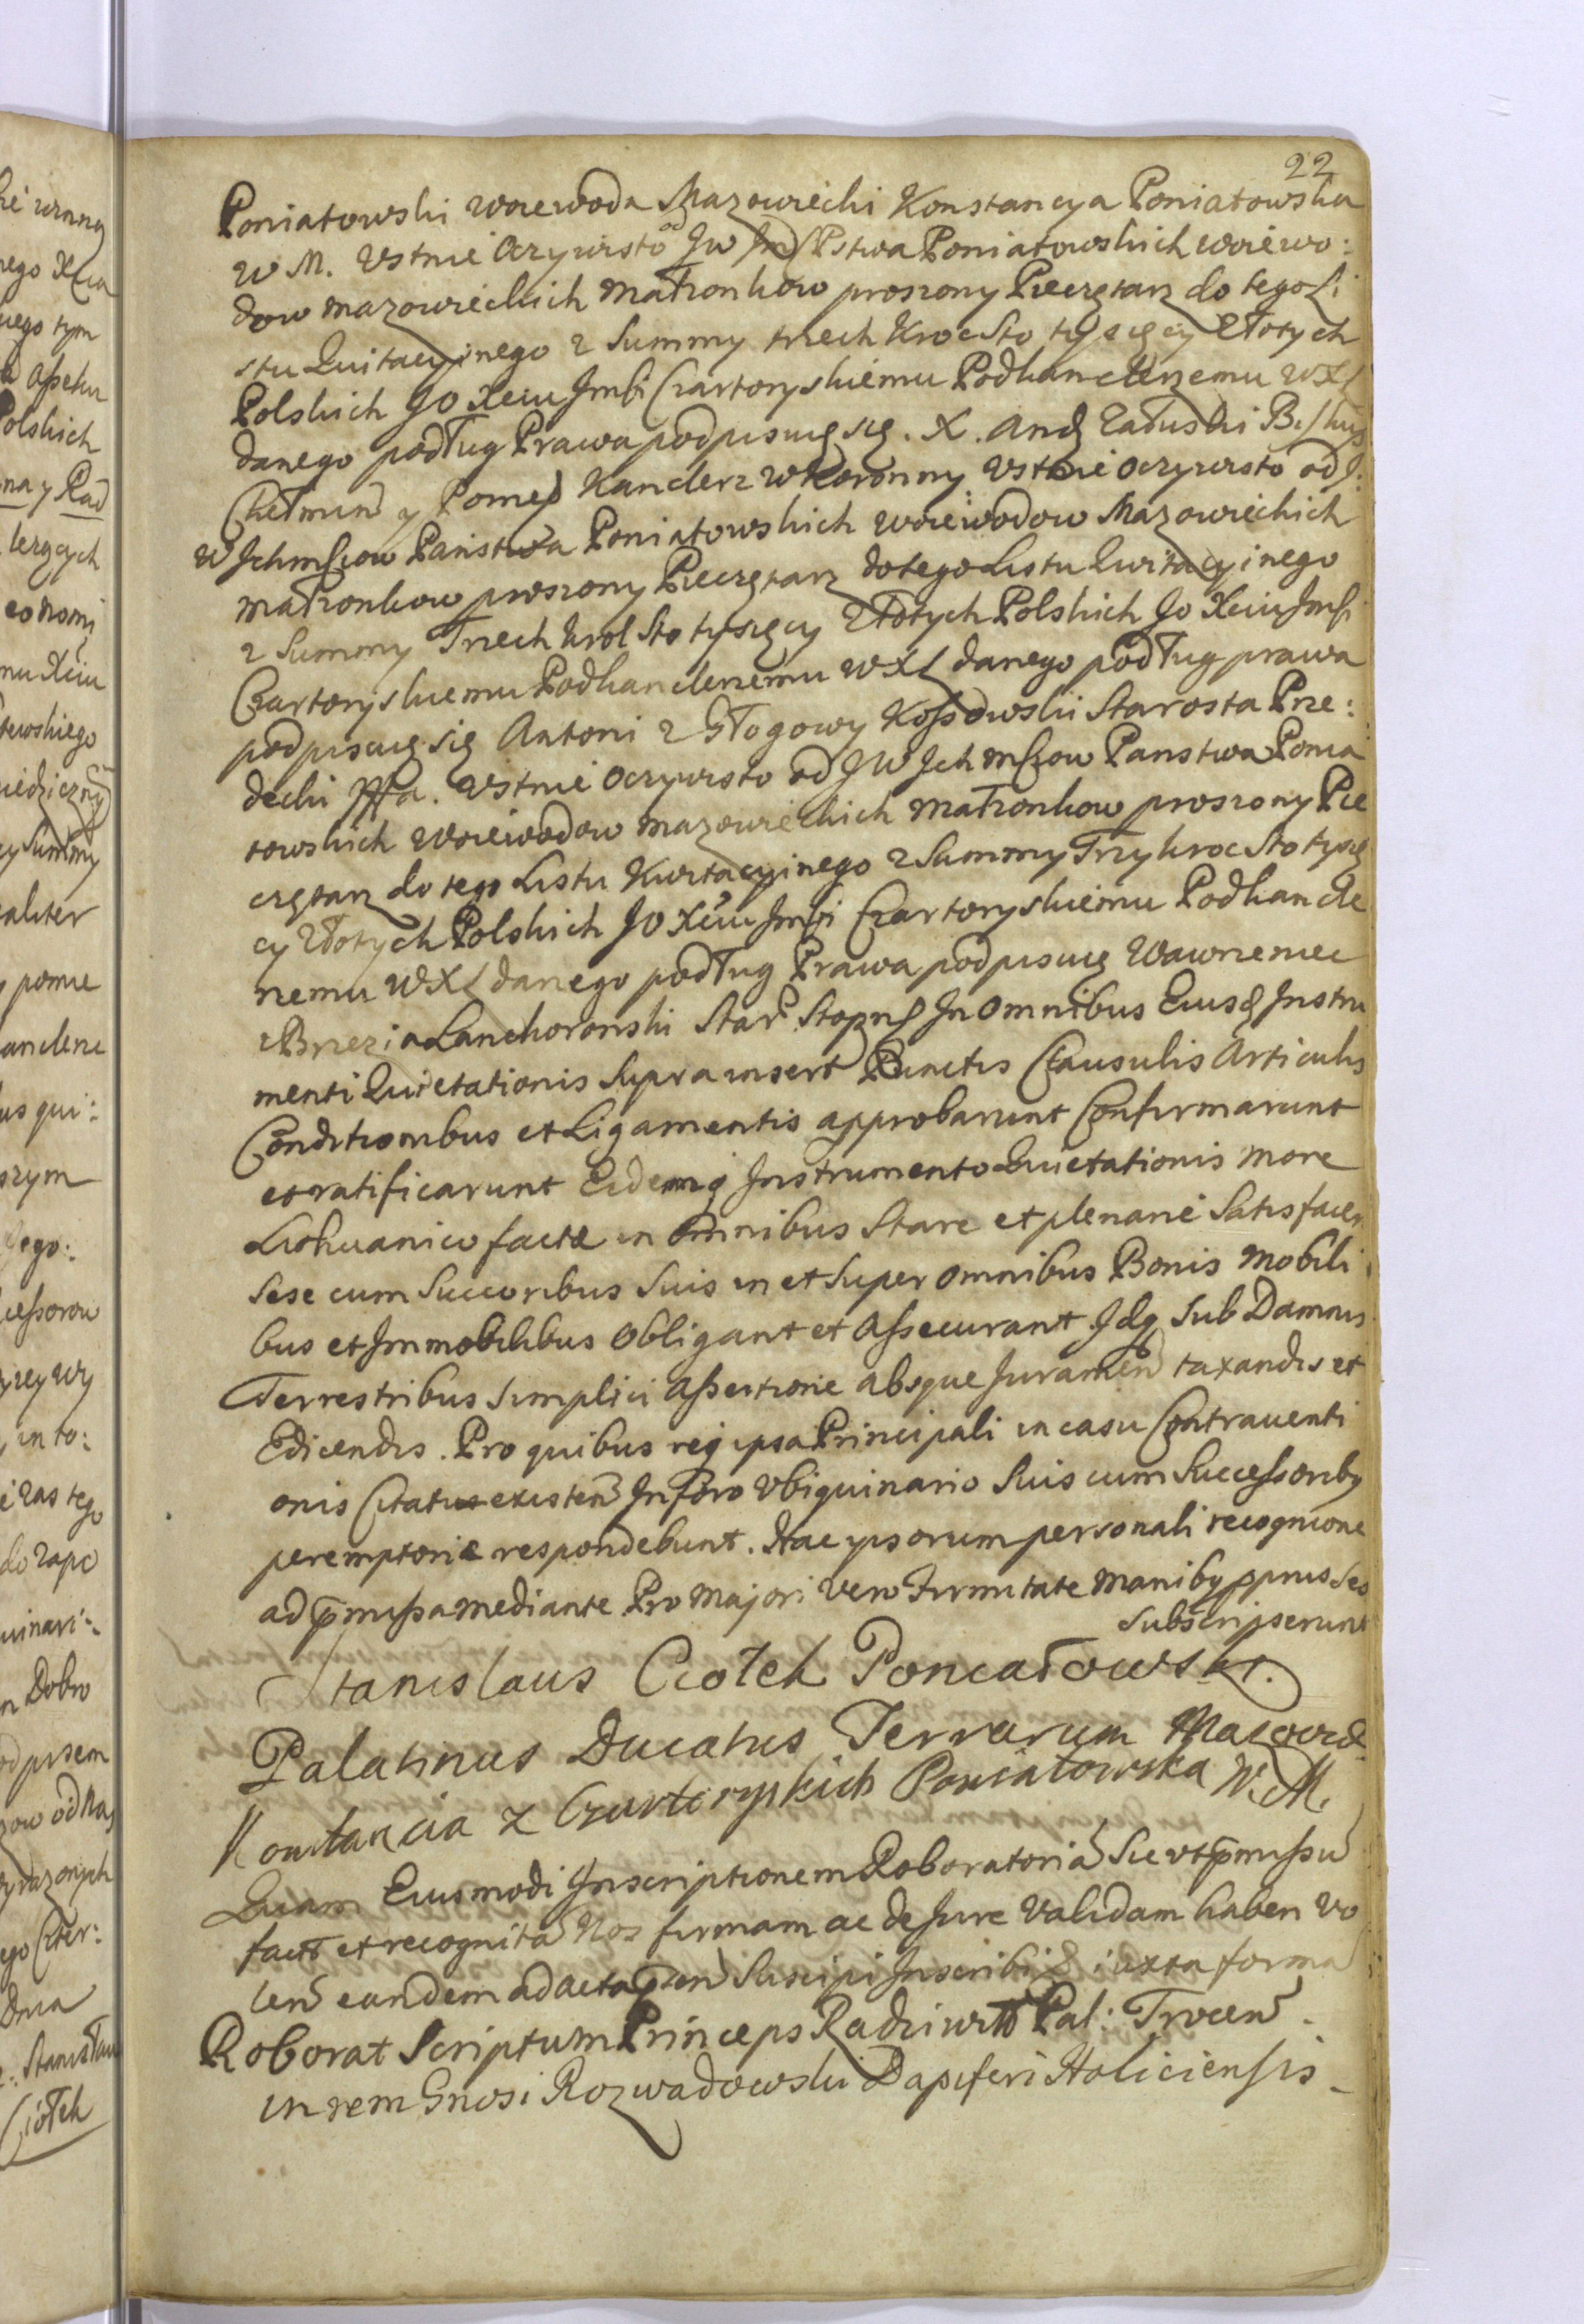 22
Poniatowski Woiewoda Mazowiecki Konstancya Poniatowska
W M. Vstnie Oczywisto od JW Państwa Poniatowskich Woiewo:
dow Mazowieckich Małzonkow proszony Pieczętarz do tego Li
stu Quitacyinego z Summy trzech Kroc Sto tysięcy Złotych
Polskich JO Xciu Jmsci Czartoryskiemu Podkanclerzemu WXL
danego podług Prawa podpisuię się. X. Andz Załuski Biskup
Chełmin y Pomez Kanclerz WKoronny Vstnie Oczywisto od J:
W Jchmsciow Państwa Poniatowskich Woiewodow Mazowieckich
Małzonkow proszony Pieczętarz do tego Listu Quitacyinego
z Summy Trzech krol Sto tysięcy Złotych Polskich Jo Xciu Jmsci
Czartoryskiemu Podkanclerzemu WXL danego podług prawa
podpisuię się Antoni z Głogowy Kossowski Starosta Prze:
decki Mppa. Vstnie Oczywisto od JW Jchmsciow Panstwa Ponia
towskich Woiewodow Mazowieckich Małzonkow proszony Pie
czętarz do tego Listu Kwitacyinego z Summy Trzykroc Sto tysię
cy Złotych Polskich JO Xciu Jmsci Czartoryskiemu Podkancle
rzemu WXL danego podług Prawa podpisuię Wawrzeniec
z Brzezia Lanckoronski Star Stopn In Omnibus Eiusq Instru
menti Quietationis Supra insert Punctis Clausulis Articulis
Conditionibus et Ligamentis approbarunt Confirmarunt
et ratificarunt Eidemq Instrumento Quietationis more
Lithuanico factæ in Omnibus Stare et plenarie Satisfacer
sese cum Succoribus Suis in et Super omnibus Bonis Mobili
bus et Immobilibus Obligant et Assecurant. Idq Sub Damnis
Terrestribus Simplici Assertione absque Juramen taxandis et
Edicendis. Pro quibus req ipsa Principali in casu Contraventi
onis Citatus existen In foro Vbiquinario Suis cum Successoriby
peremptorie respondebunt. Hac ipsorum personali recognione
ad pmissa mediante Pro Majori Vero Firmitate Maniby pprus Ses
Subscripserunt
Stanislaus Ciołek Poniatowski.
Palatinus Ducatus Terrarum Mazoviæ
Konstancia z Czartoryskich Poniatowska W. M.
Quam Eiusmodi Inscriptionem Roboratoria Sic vt pmissu
fact et recognita Nos firmam ac de Jure Validam haberi Vo
len eandem ad acta pten Suscipi Inscribiq iuxta forma
Roborat Scriptum Princeps Radziwiłł Pal: Trocen.
in rem Gnosi Rozwadowski Dapiferi Haliciensis